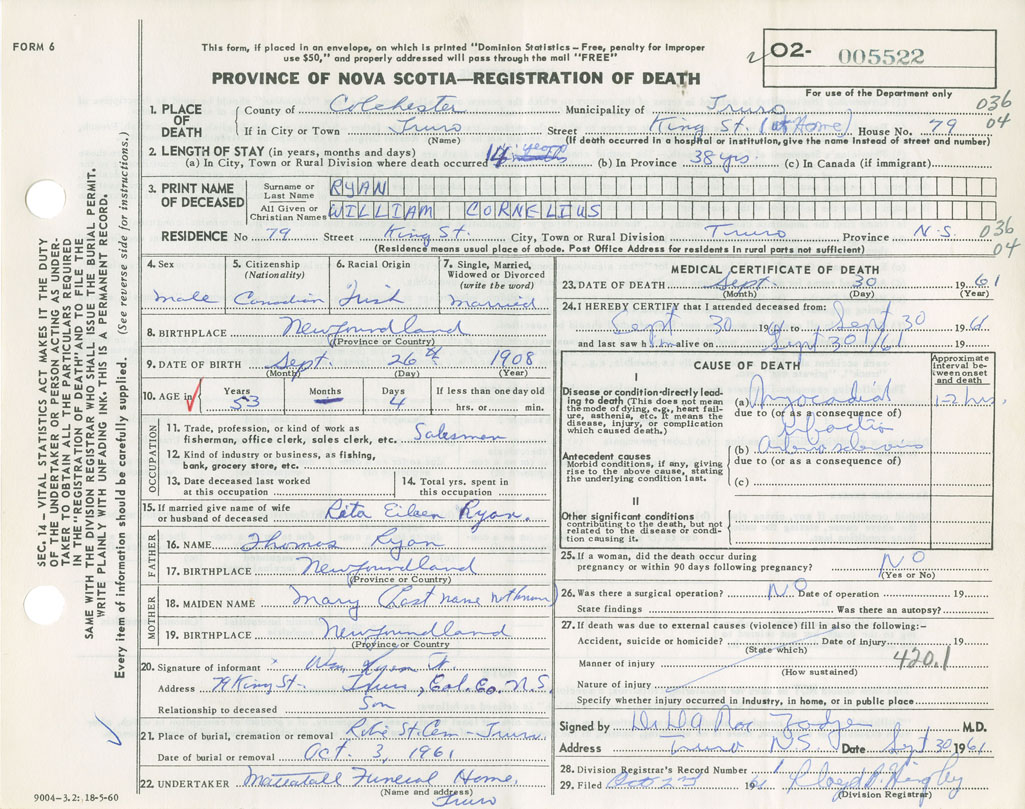 FORM 6
This form, if placed in an envelope, on which is printed "Dominion Statistics – Free, penalty for improper
use $50," and properly addressed will pass through the mail "FREE"
PROVINCE OF NOVA SCOTIA—REGISTRATION OF DEATH
02- 005522
For use of the Department only
036
04
1. PLACE OF DEATH
County of Colchester Municipality of Truro
If in City or Town Truro Street King St. (at Home) House No. 79
(Name) (If death occurred in a hospital or institution, give name instead of street and number)
2. LENGTH OF STAY (in years, months and days)
(a) In City, Town or Rural Division where death occurred 14 years (b) In Province 38 yrs. (c) In Canada (if immigrant)
3. PRINT NAME OF DECEASED
Surname or Last Name RYAN
All Given or Christian Names WILLIAM CORNELIUS
RESIDENCE No 79 Street King St. City, Town or Rural Division Truro Province N.S.
036
04
(Residence means usual place of abode. Post Office Address for residents in rural parts not sufficient)
4. Sex male
5. Citizenship (Nationality) Canadian
6. Racial Origin Irish
7. Single, Married, Widowed or Divorced (write the word) married
8. BIRTHPLACE Newfoundland
(Province or Country)
9. DATE OF BIRTH Sept. 26th 1908
(Month) (Day) (Year)
10. AGE in Years 53 Months — Days 4 If less than one day old hrs. or min.
OCCUPATION
11. Trade, profession, or kind of work as
fisherman, office clerk, sales clerk, etc. Salesman
12. Kind of industry or business, as fishing,
bank, grocery store, etc.
13. Date deceased last worked
at this occupation
14. Total yrs. spent in
this occupation
15. If married give name of wife
or husband of deceased Rita Eileen Ryan.
FATHER
16. NAME Thomas Ryan
17. BIRTHPLACE Newfoundland
(Province or Country)
MOTHER
18. MAIDEN NAME Mary (Last name not known)
19. BIRTHPLACE Newfoundland
(Province or Country)
20. Signature of informant Wm Ryan
Address 79 King St. Truro, Col. Co. N.S.
Relationship to deceased Son
21. Place of burial, cremation or removal Robie St. Cem – Truro.
Date of burial or removal Oct. 3, 1961
22. UNDERTAKER Mattatall Funeral Home,
(Name and address) Truro
9004-3.2: 18-5-60
MEDICAL CERTIFICATE OF DEATH
23. DATE OF DEATH Sept. 30 1961
(Month) (Day) (Year)
24. I HEREBY CERTIFY that I attended deceased from:
Sept 30 1961 to Sept 30 1961
and last saw him alive on Sept 30 1961
CAUSE OF DEATH
Approximate interval between onset and death
I
Disease or condition directly leading to death (This does not mean the mode of dying, e.g., heart failure, asthenia, etc. It means the disease, injury, or complication which caused death.)
(a) 1-2 hrs.
due to (or as a consequence of)
Antecedent causes
Morbid conditions, if any, giving rise to the above cause, stating the underlying condition last.
(b)
due to (or as a consequence of)
(c)
II
Other significant conditions
contributing to the death, but not related to the disease or condition causing it.
25. If a woman, did the death occur during
pregnancy or within 90 days following pregnancy? NO
(Yes or No)
26. Was there a surgical operation? No Date of operation 19
State findings Was there an autopsy?
27. If death was due to external causes (violence) fill in also the following:-
Accident, suicide or homicide? Date of injury 19
(State which)
420.1
Manner of injury
(How sustained)
Nature of injury
Specify whether injury occurred in industry, in home, or in public place
Signed by M.D.
Address Truro NS Date Sept 30 1961
28. Division Registrar's Record Number
29. Filed 1961 Lloyd
(Division Registrar)
SEC. 14 – VITAL STATISTICS ACT MAKES IT THE DUTY
OF THE UNDERTAKER OR PERSON ACTING AS UNDER-
TAKER TO OBTAIN ALL THE PARTICULARS REQUIRED
IN THE "REGISTRATION OF DEATH" AND TO FILE THE
SAME WITH THE DIVISION REGISTRAR WHO SHALL ISSUE THE BURIAL PERMIT.
WRITE PLAINLY WITH UNFADING INK. THIS IS A PERMANENT RECORD.
Every item of information should be carefully supplied. (See reverse side for instructions.)